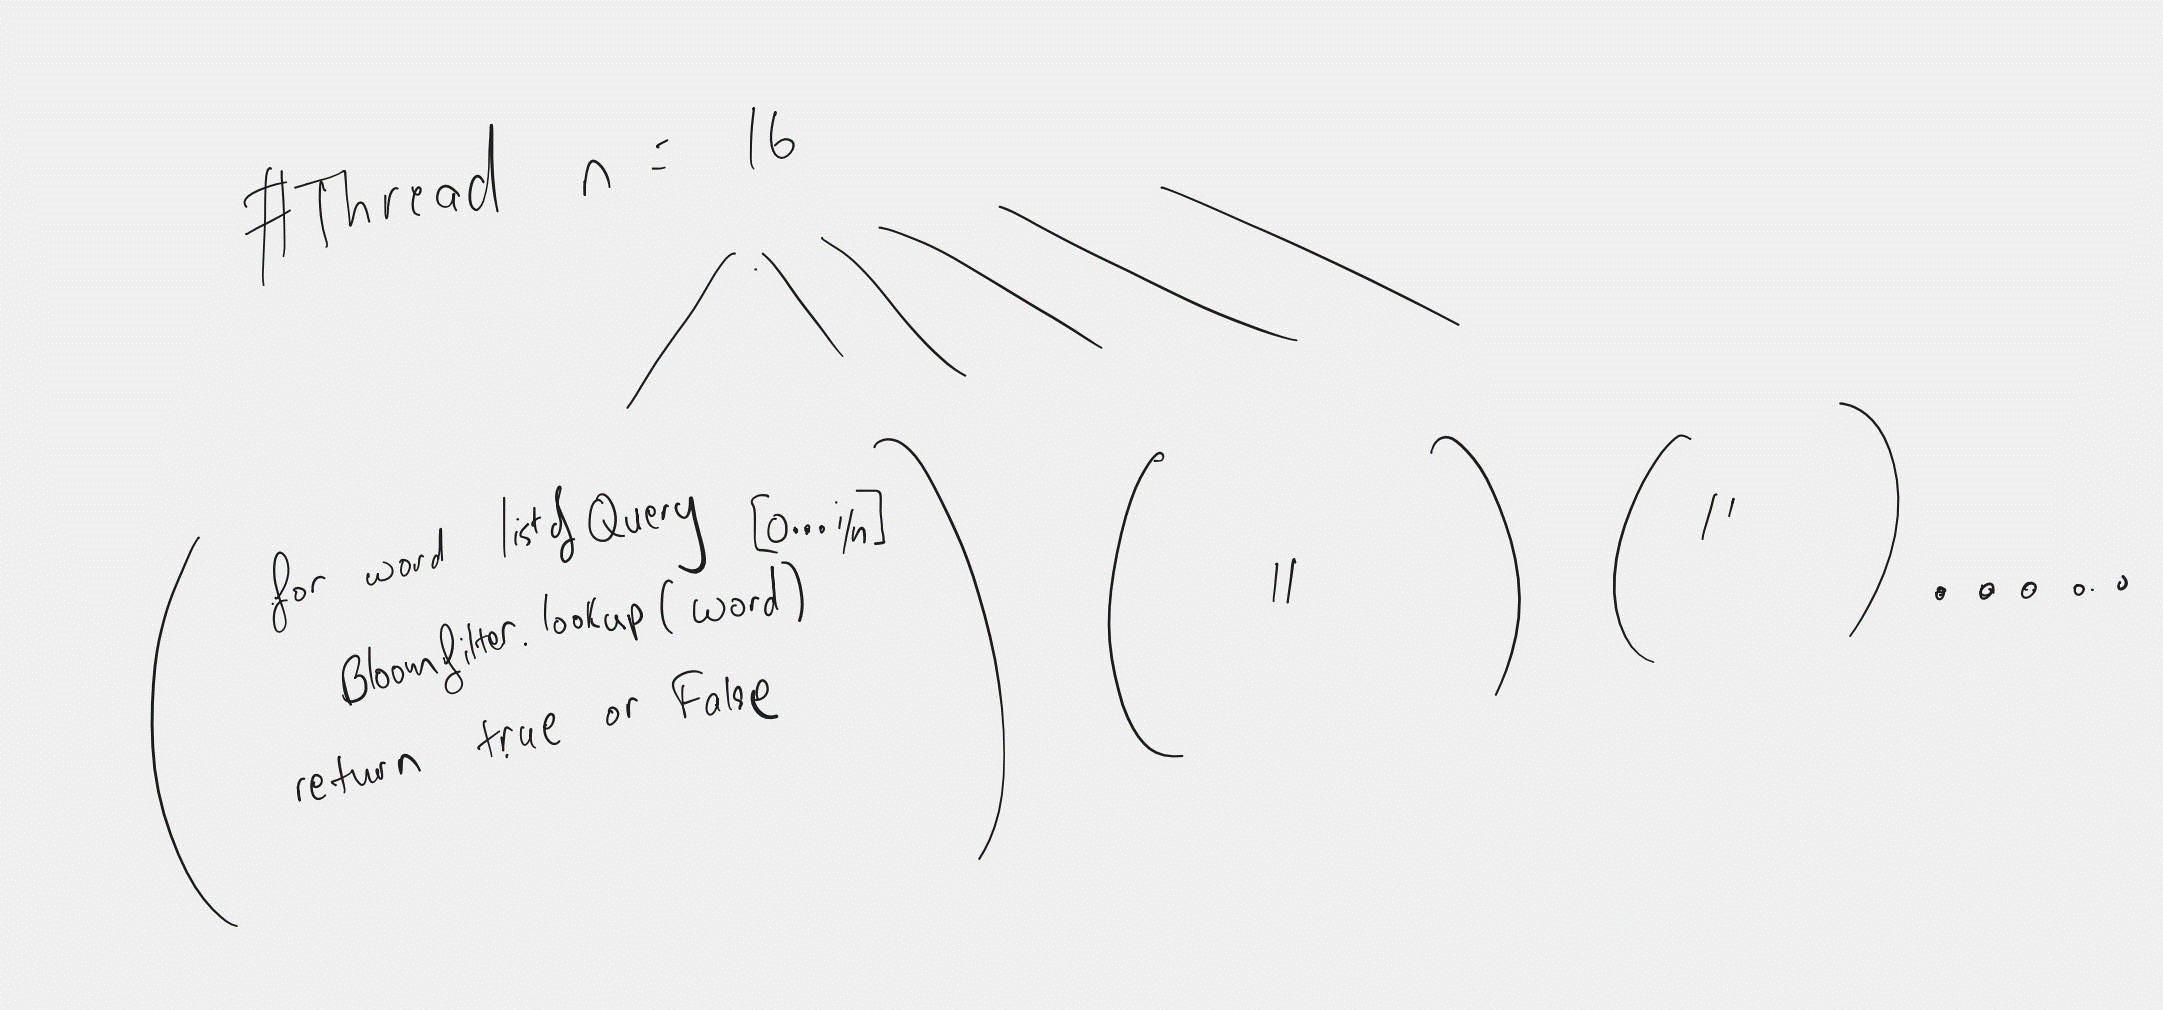 #Thread n = 16
for word listofQuery [0...i/n]
Bloomfilter.lookup(word)
return true or False
"
"
.....